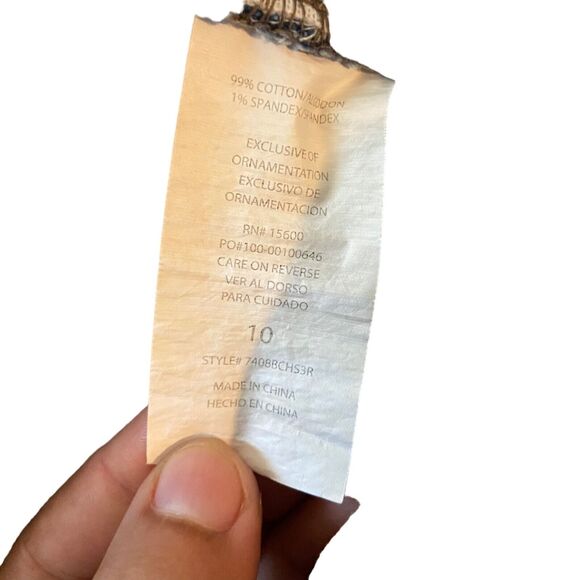 99% COTTON/ALGODON
1% SPANDEX/SPANDEX
EXCLUSIVE OF
ORNAMENTATION
EXCLUSIVO DE
ORNAMENTACION
RN# 15600
PO#100-00100646
CARE ON REVERSE
VER AL DORSO
PARA CUIDADO
10
STYLE# 7408BCHS3R
MADE IN CHINA
HECHO EN CHINA